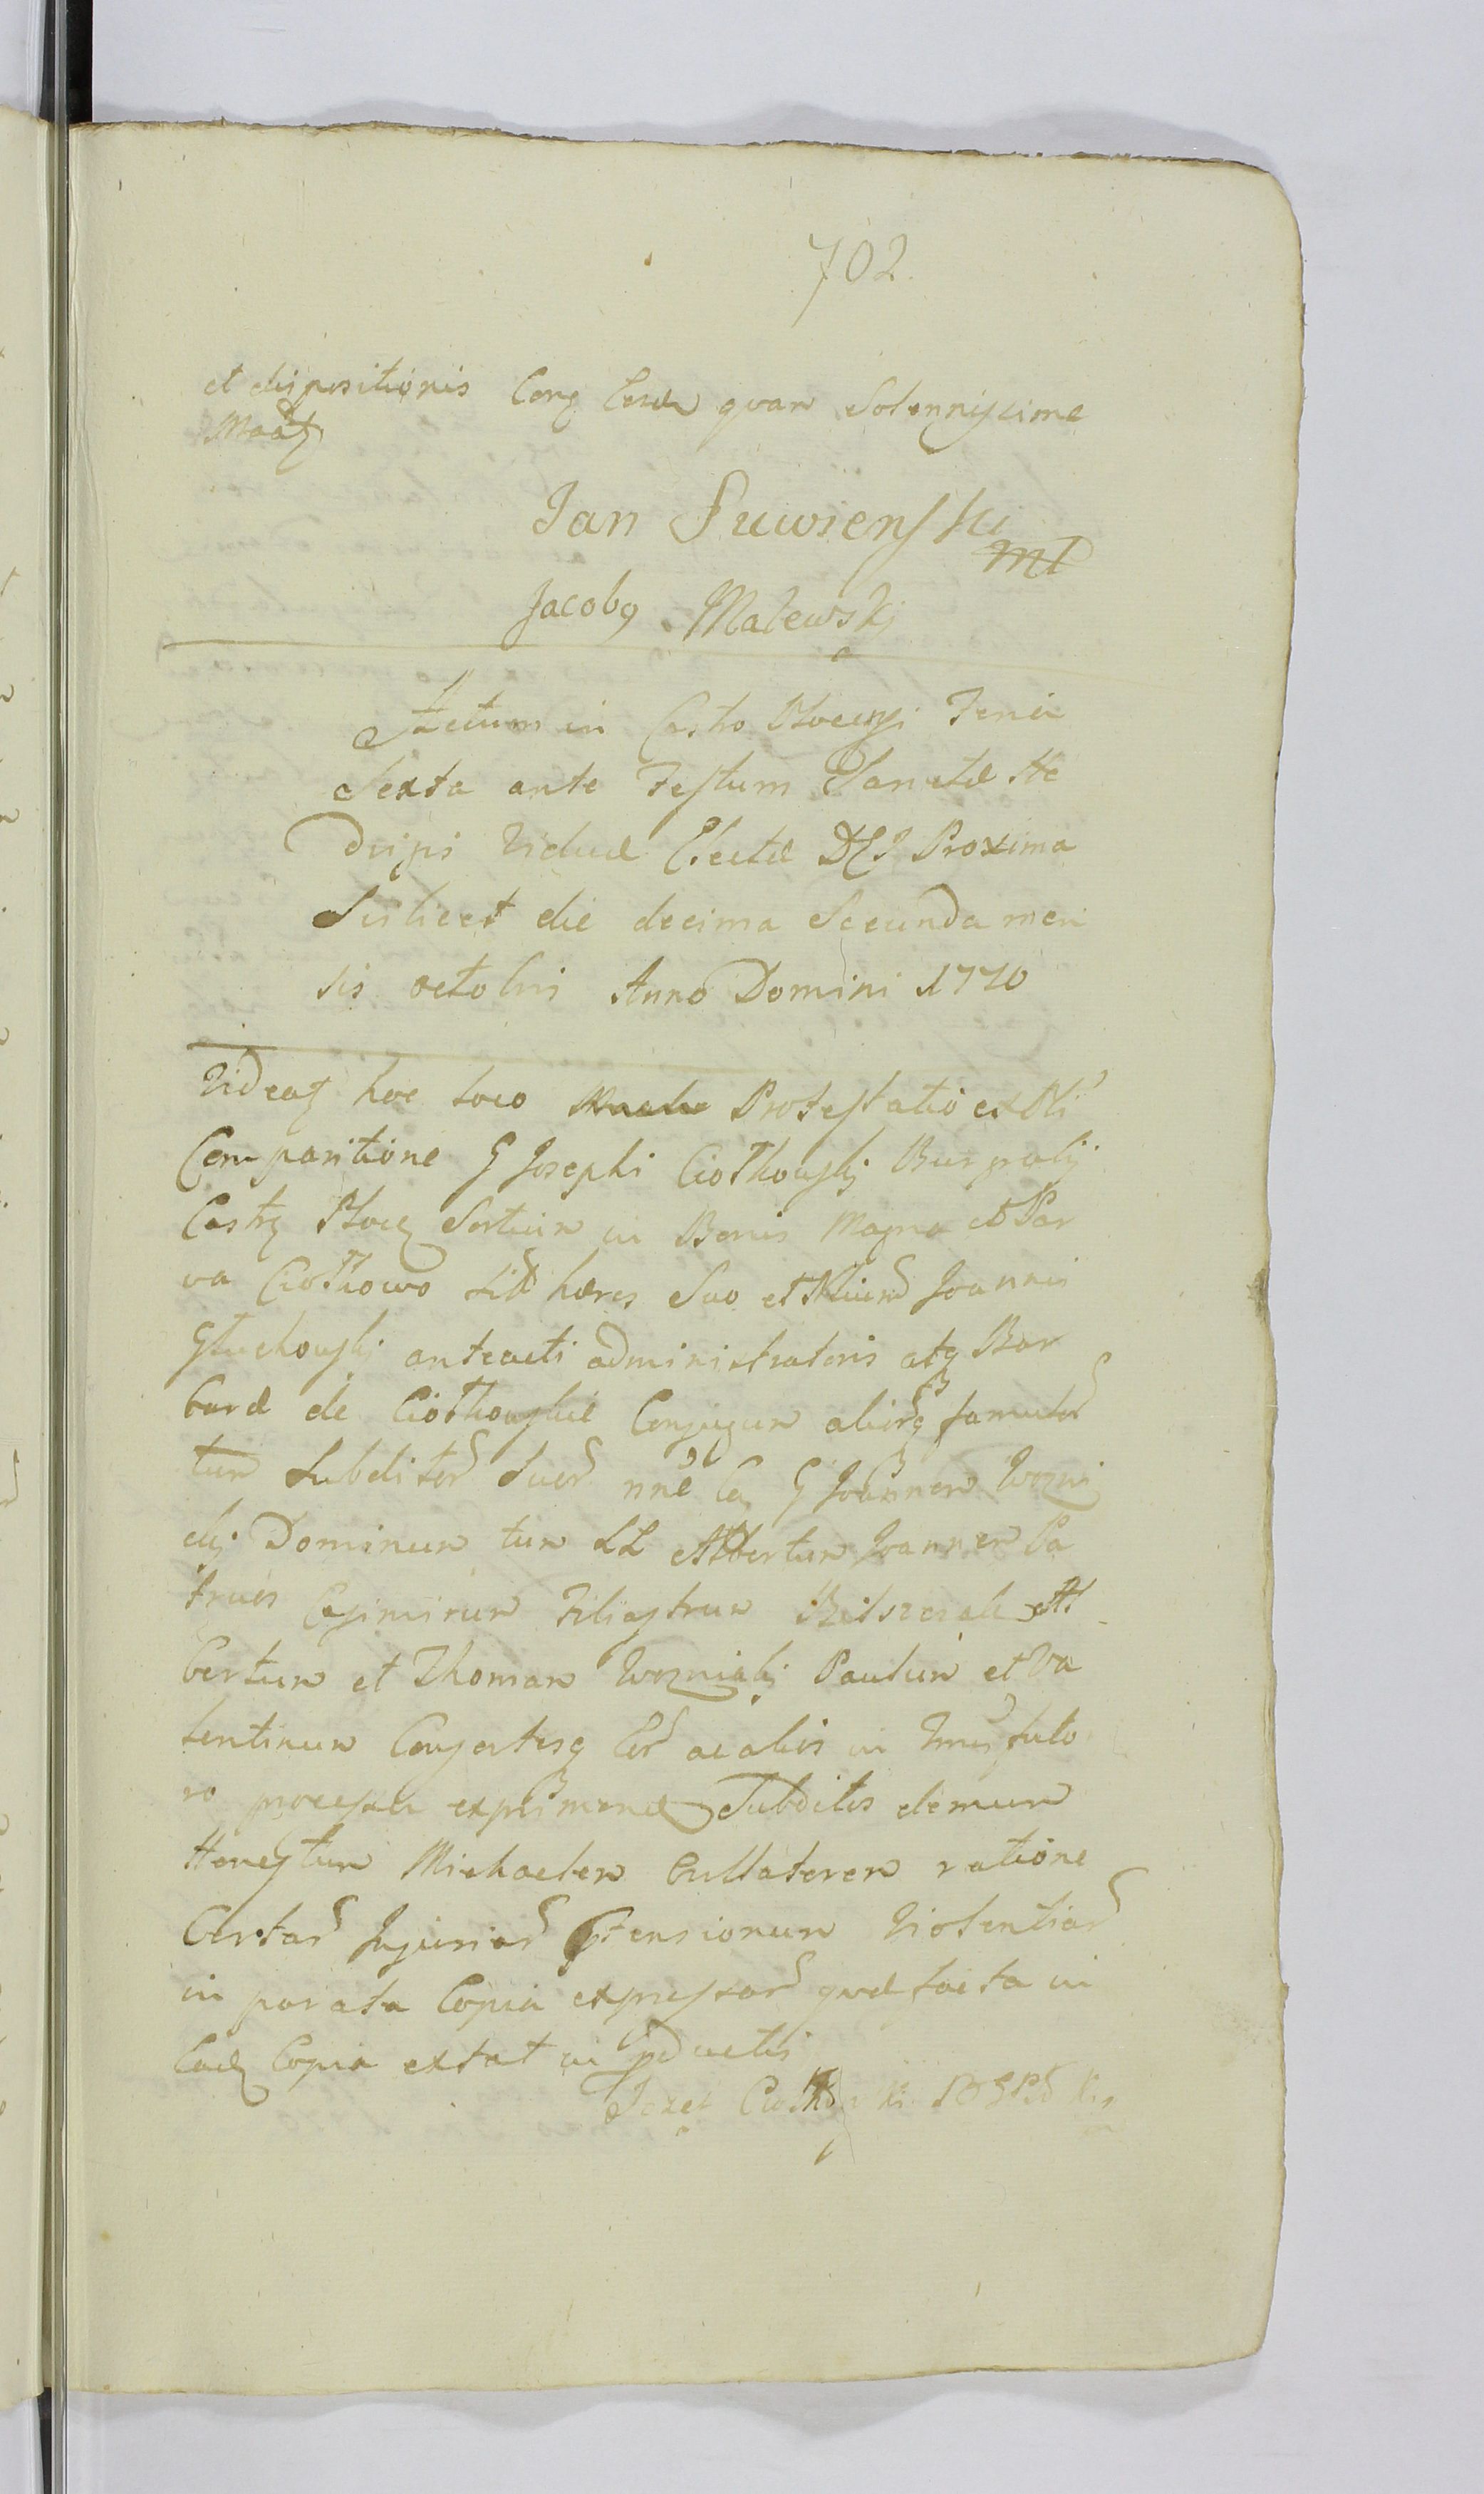 702
et dispositionis Corq Cesdn quam Solennissime
Maatz
Jan Suwienski
mp
Jacobq Malewskj
Actum in Castro Plocensi Feria
Sexta ante Festum Sanctæ He
dvigis Viduæ Electæ DEI Proxima
Scilicet die decima Secunda men
sis octobris Anno Domini 1770
Videatz hoc loco Protestatio ex Pli
Comparitione G Josephi Ciołkowskj Burgrabij
Castrz Plocz Sortium in Bonis Magna et Par
va Ciołkowo hæres Suo et Joannis
Głuchowskj anteacti administratoris atq Bar
baræ de Ciołkowskie Conjugum aliorq famulor
tum Subditor Suor nne Ca G Joannem Wozni
ckj Dominum tum LL Albertum Joannem Pa
truos Casimirum Filiastrum Al
bertum et Thomam Wozniakj Paulum et Va
lentinum Consortesq Eor ac aliis in futu
ro processu exprimendz Subditis demum
Honestum Michaelem ratione
Certar Injuriar Violentiar
in parata Copia expressar quæ facta in
Eadz Copia extat in Inductis
Jozef